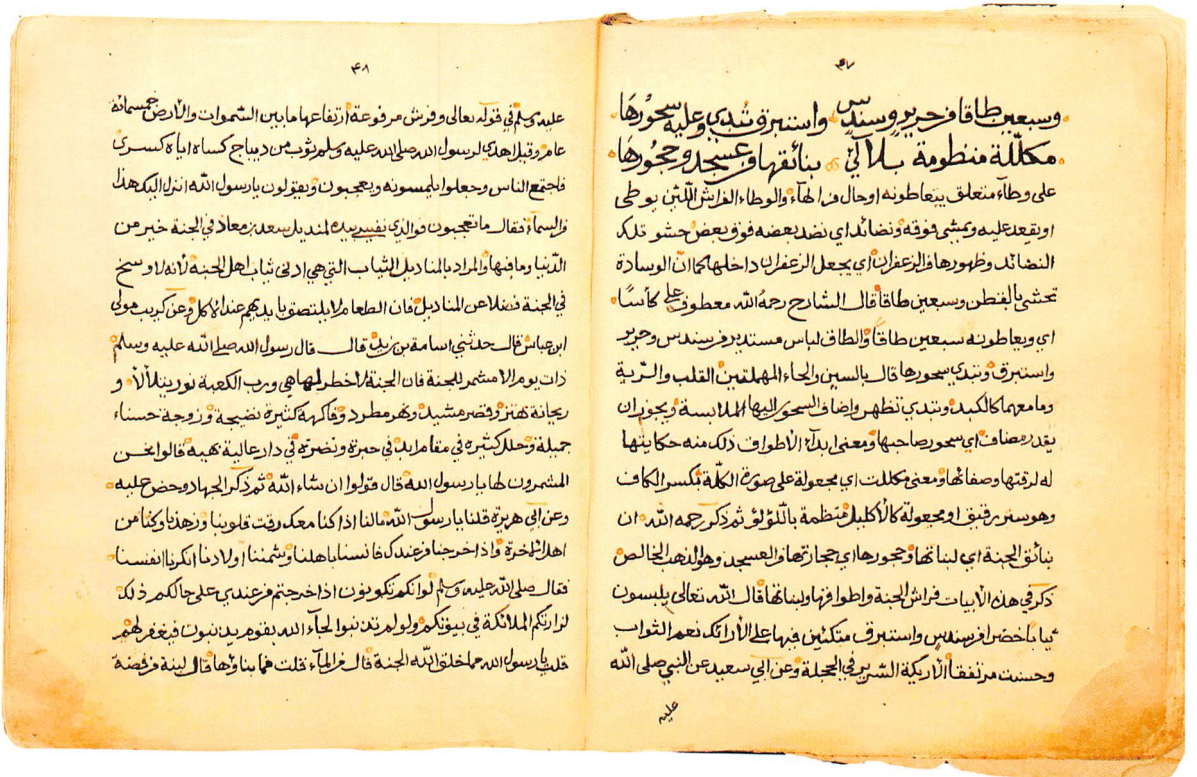 ٤٧
وسبعين طاقا من حرير وسندس واستبرق تبدي وعليه سحورها
مكللة منظومة بلآلي بنائقها من عسجد وحجورها
على وطآء متعلق بيتعاطونه او حال من الهآء والوطاء الفراش اللين يوطى
او يقعد عليه ويمشى فوقه ونضائد اي نضد بعضه فوق بعض حشو تلك
النضائد وظهورها من الزعفران اي يجعل الزعفران داخلها كما ان الوسادة
تحشى بالقطن وسبعين طاقا قال الشارح رحمه الله معطوف على كأسًا
اي ويعاطونه سبعين طاقا والطاق لباس مستدير من سندس وحرير
واستبرق وتبدي سحورها قال بالسين والحاء المهملتين القلب والرية
وما معهما كالكبد وتبدي تظهر واضاف السحور اليها الملابسة ويجوز ان
يقدر مضاف اي سحور صاحبها ومعنى ابداء الأطواق ذلك منه حكايتها
له لرقتها وصفائها ومعنى مكللت اي مجعولة على صورة الكلة بكسر الكاف
وهو ستر رقيق او مجعولة كالاكليل منتظمة باللؤلؤ ثم ذكر رحمه الله ان
بنائق الجنة اي لبناتها وحجورها اي حجارتها والعسجد وهو الذهب الخالص
ذكر في هذه الأبيات فراش الجنة واطوافها ولبناتها قال الله تعالى يلبسون
ثيابا خضرا من سندس واستبرق متكئين فيها على الأرائك نعم الثواب
وحسنت مرتفقا الاريكة السرير في الحجلة وعن ابي سعيد عن النبي صلى الله
عليه
٤٨
عليه وسلم في قوله تعالى وفرش مرفوعة ارتفاعها ما بين السموات والأرض خمسمائة
عام وقيل اهدي لرسول الله صلى الله عليه وسلم ثوب من ديباج كساه اياه كسرى
فاجتمع الناس وجعلوا يلمسونه ويعجبون ويقولون يا رسول الله انزل اليك هذا
من السمآء فقال ما تعجبون فوالذي نفسي بيده لمنديل سعد بن معاذ في الجنة خير من
الدنيا وما فيها والمراد بالمناديل الثياب التي هي ادنى ثياب اهل الجنة لأنه لا وسخ
في الجنة فضلا عن المناديل فان الطعام لا يلتصق بايديهم عند الأكل وعن كريب مولى
ابن عباس قال حدثني اسامة بن زيد قال قال رسول الله صلى الله عليه وسلم
ذات يوم الا مشمر للجنة فان الجنة لا خطر لها هي ورب الكعبة نور يتلألأ و
ريحانة تهتز وقصر مشيد ونهر مطرد وفاكهة كثيرة نضيجة وزوجة حسناء
جميلة وحلل كثيرة في مقام ابد في حبرة ونضرة في دار عالية بهية قالوا نحن
المشمرون لها يا رسول الله قال قولوا ان شاء الله ثم ذكر الجهاد وحض عليه
وعن ابي هريرة قلنا يا رسول الله مالنا اذا كنا معك رقت قلوبنا وزهدنا وكنا من
اهل الآخرة واذا خرجنا من عندك فانسنا باهلنا وشممنا اولادنا انكرنا انفسنا
فقال صلى الله عليه وسلم لو انكم تكونون اذا خرجتم من عندي على حالكم ذلك
لزارتكم الملائكة في بيوتكم ولو لم تذنبوا لجآء الله بقوم يذنبون فيغفر لهم
قلت يا رسول الله مما خلق الله الجنة قال من المآء قلت مما بناؤها قال لبنة من فضة